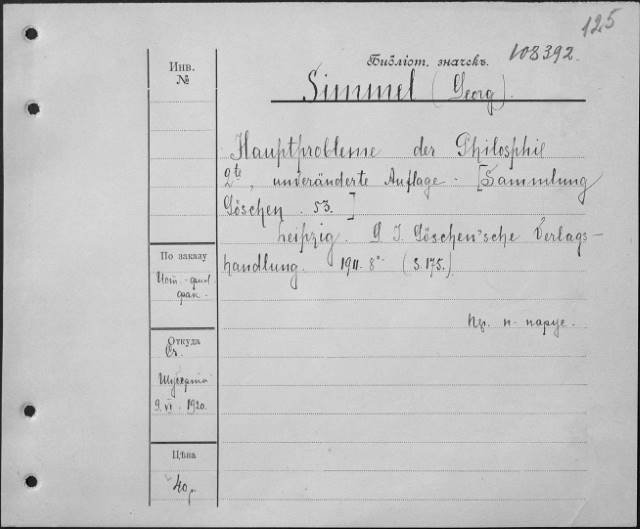 125
Библіот. значекъ. 108392.
Инв.
№
Simmel (Georg).
Hauptprobleme der Philosphie
2te, unveränderte Auflage. [Sammlung
Göschen. 53.]
Leipzig. G. J. Göschen'sche Verlags-
handlung. 1911. 8° (S. 175.)
По заказу
Ист.-фил.
фак.
Откуда
9. VI. 1920.
Цѣна
40 р.